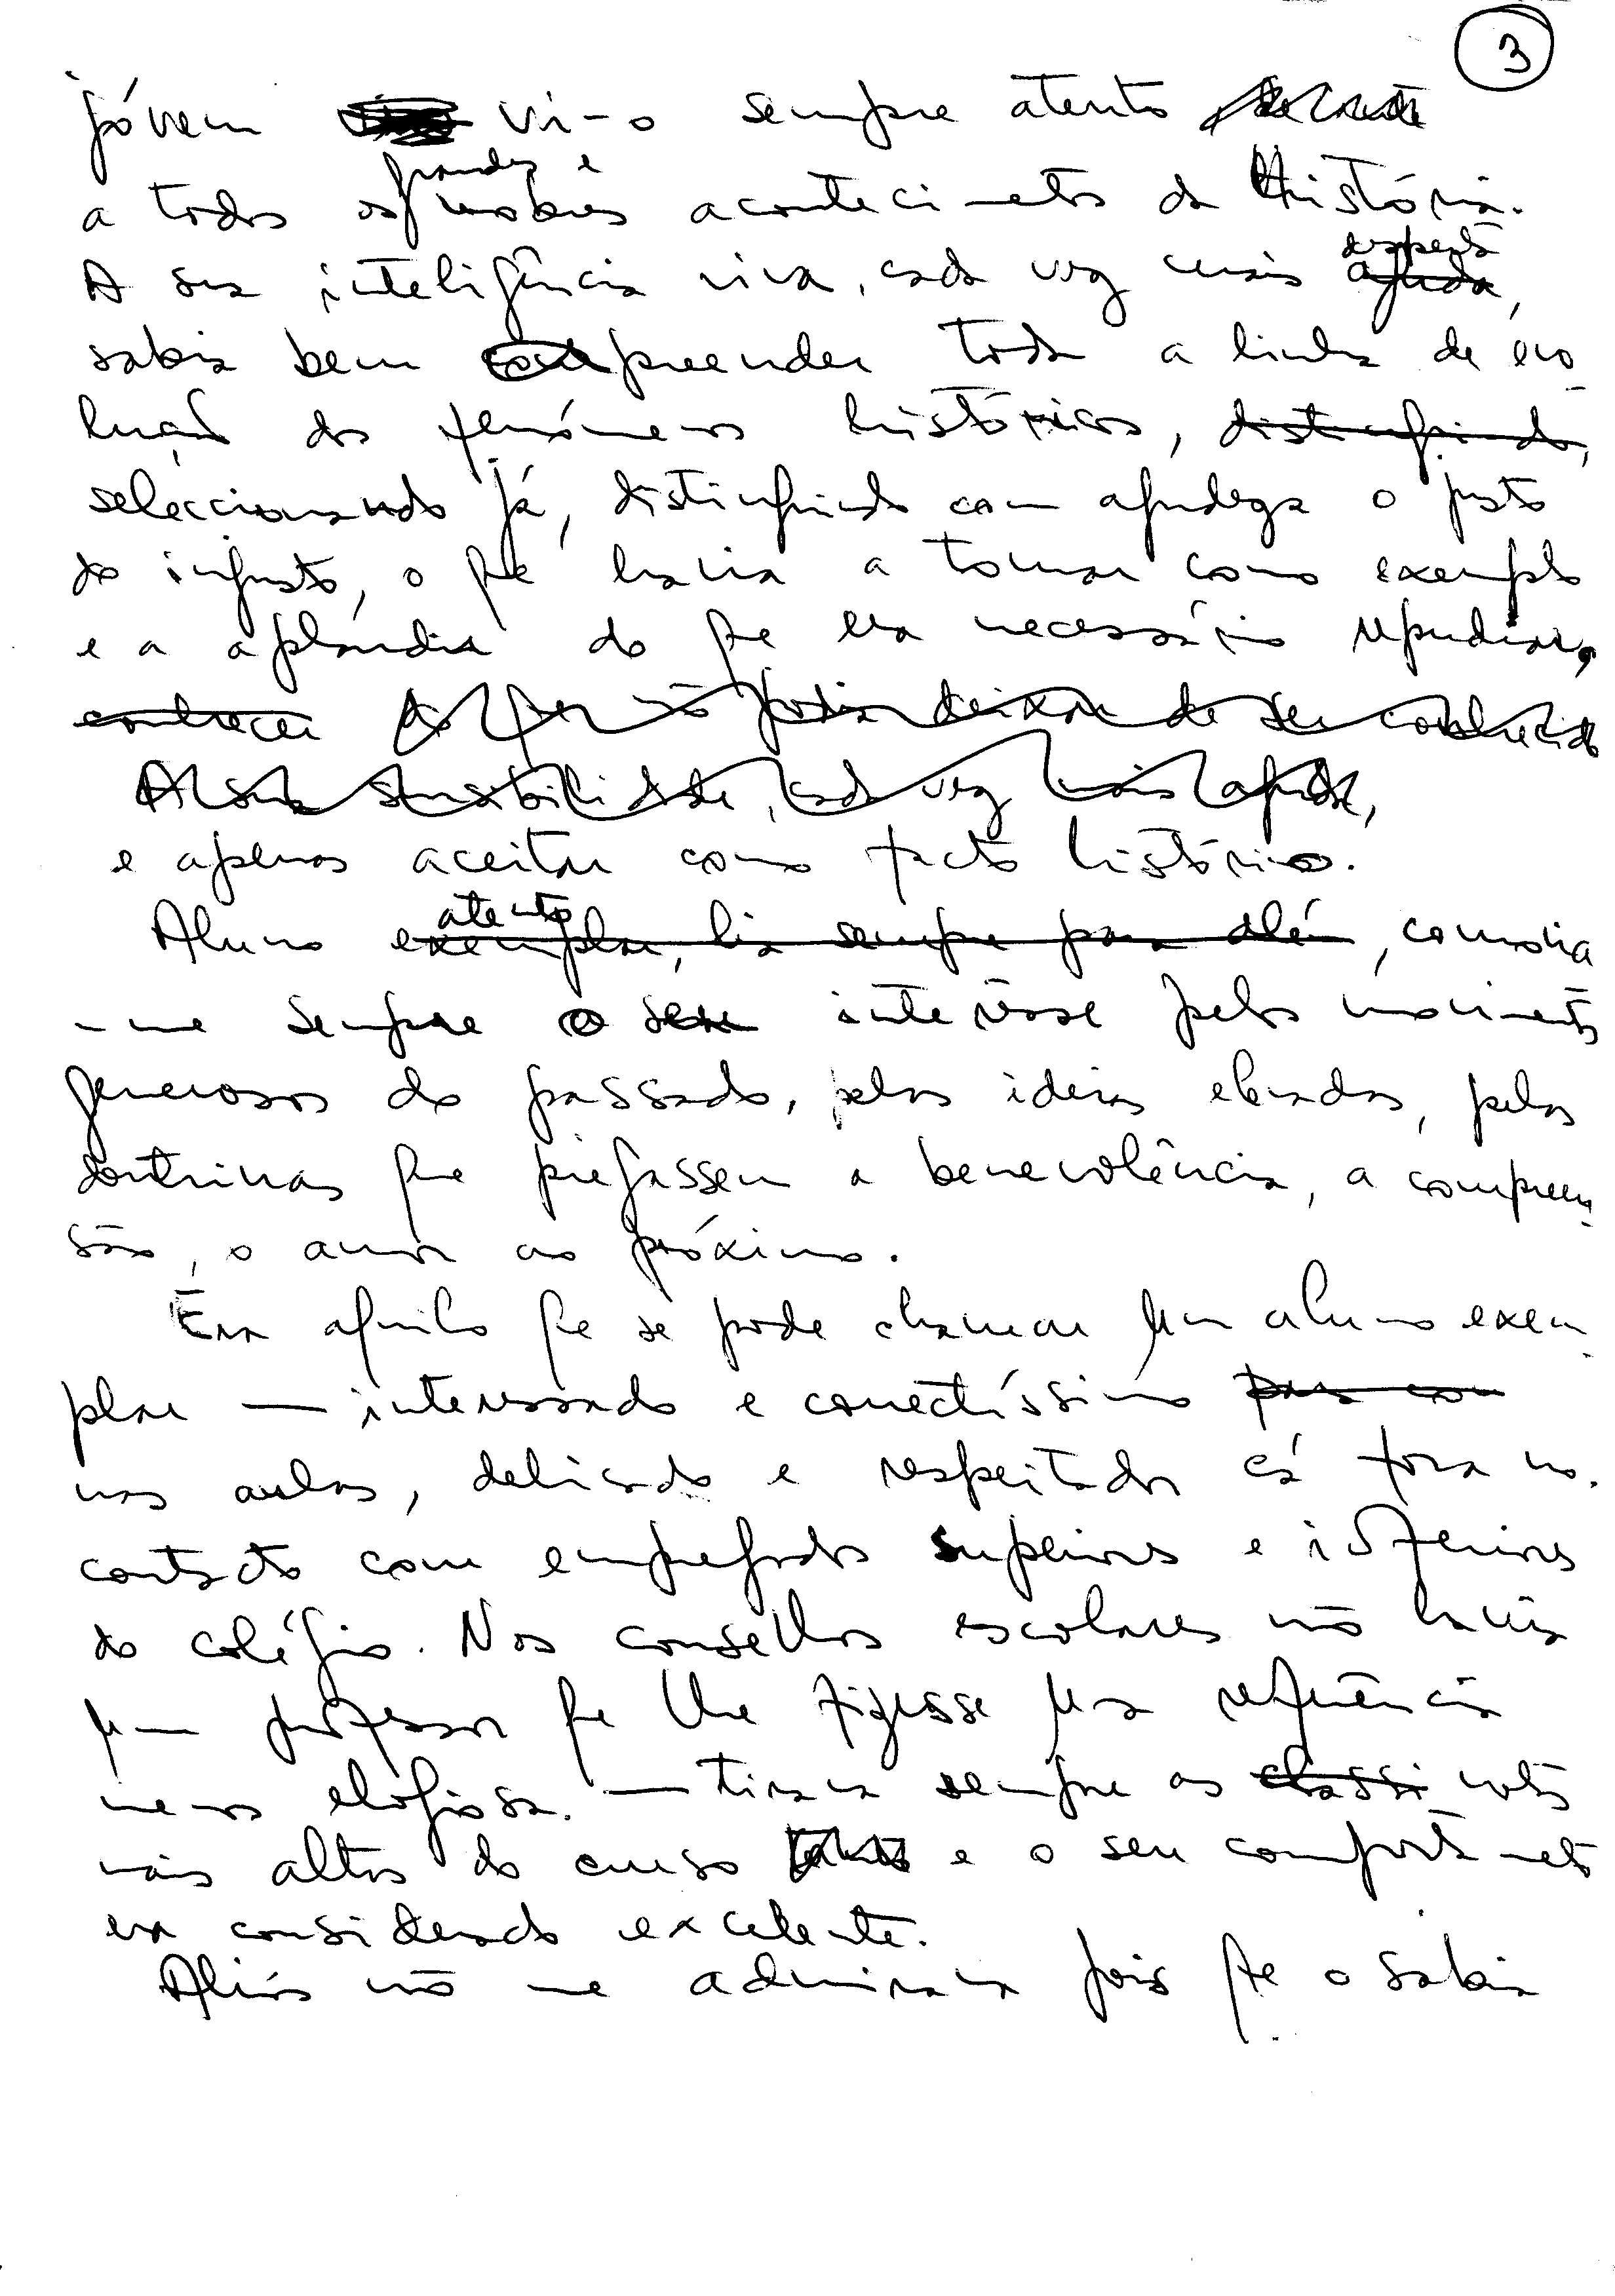 3
jóvem vi-o sempre atento
grandes e
a todos os nobres acontecimentos da História.
desperta
A sua inteligência viva, cada vez mais aguda,
sabia bem compreender toda a linha de evo
lução dos fenómenos históricos, distinguindo,
seleccionando já, distinguindo com agudeza o justo
do injusto, o que havia a tomar como exemplo
e a aplaudir do que era necessário repudiar,
conhecer do que não podia deixar de ser conhecido
A sua sensibilidade, cada vez mais aguda,
e apenas aceitar como facto histórico.
atento
Aluno exemplar, lia sempre para além, comovia
-me sempre o seu interêsse pelos movimentos
generosos do passado, pelas ideias elevadas, pelas
doutrinas que pregassem a benevolência, a compreen-
são, o amor ao próximo.
Era aquilo que se pode chamar um aluno exem-
plar — interessado e correctíssimo para com
nas aulas, delicado e respeitador cá fora no
contacto com empregados superiores e inferiores
do colégio. Nos conselhos escolares não havia
um professor que lhe fizesse uma referência
menos elogiosa. — Tirava sempre as classi notas
mais altas do curso e o seu comportamento
era considerado excelente.
Aliás não me admirava pois que o sabia